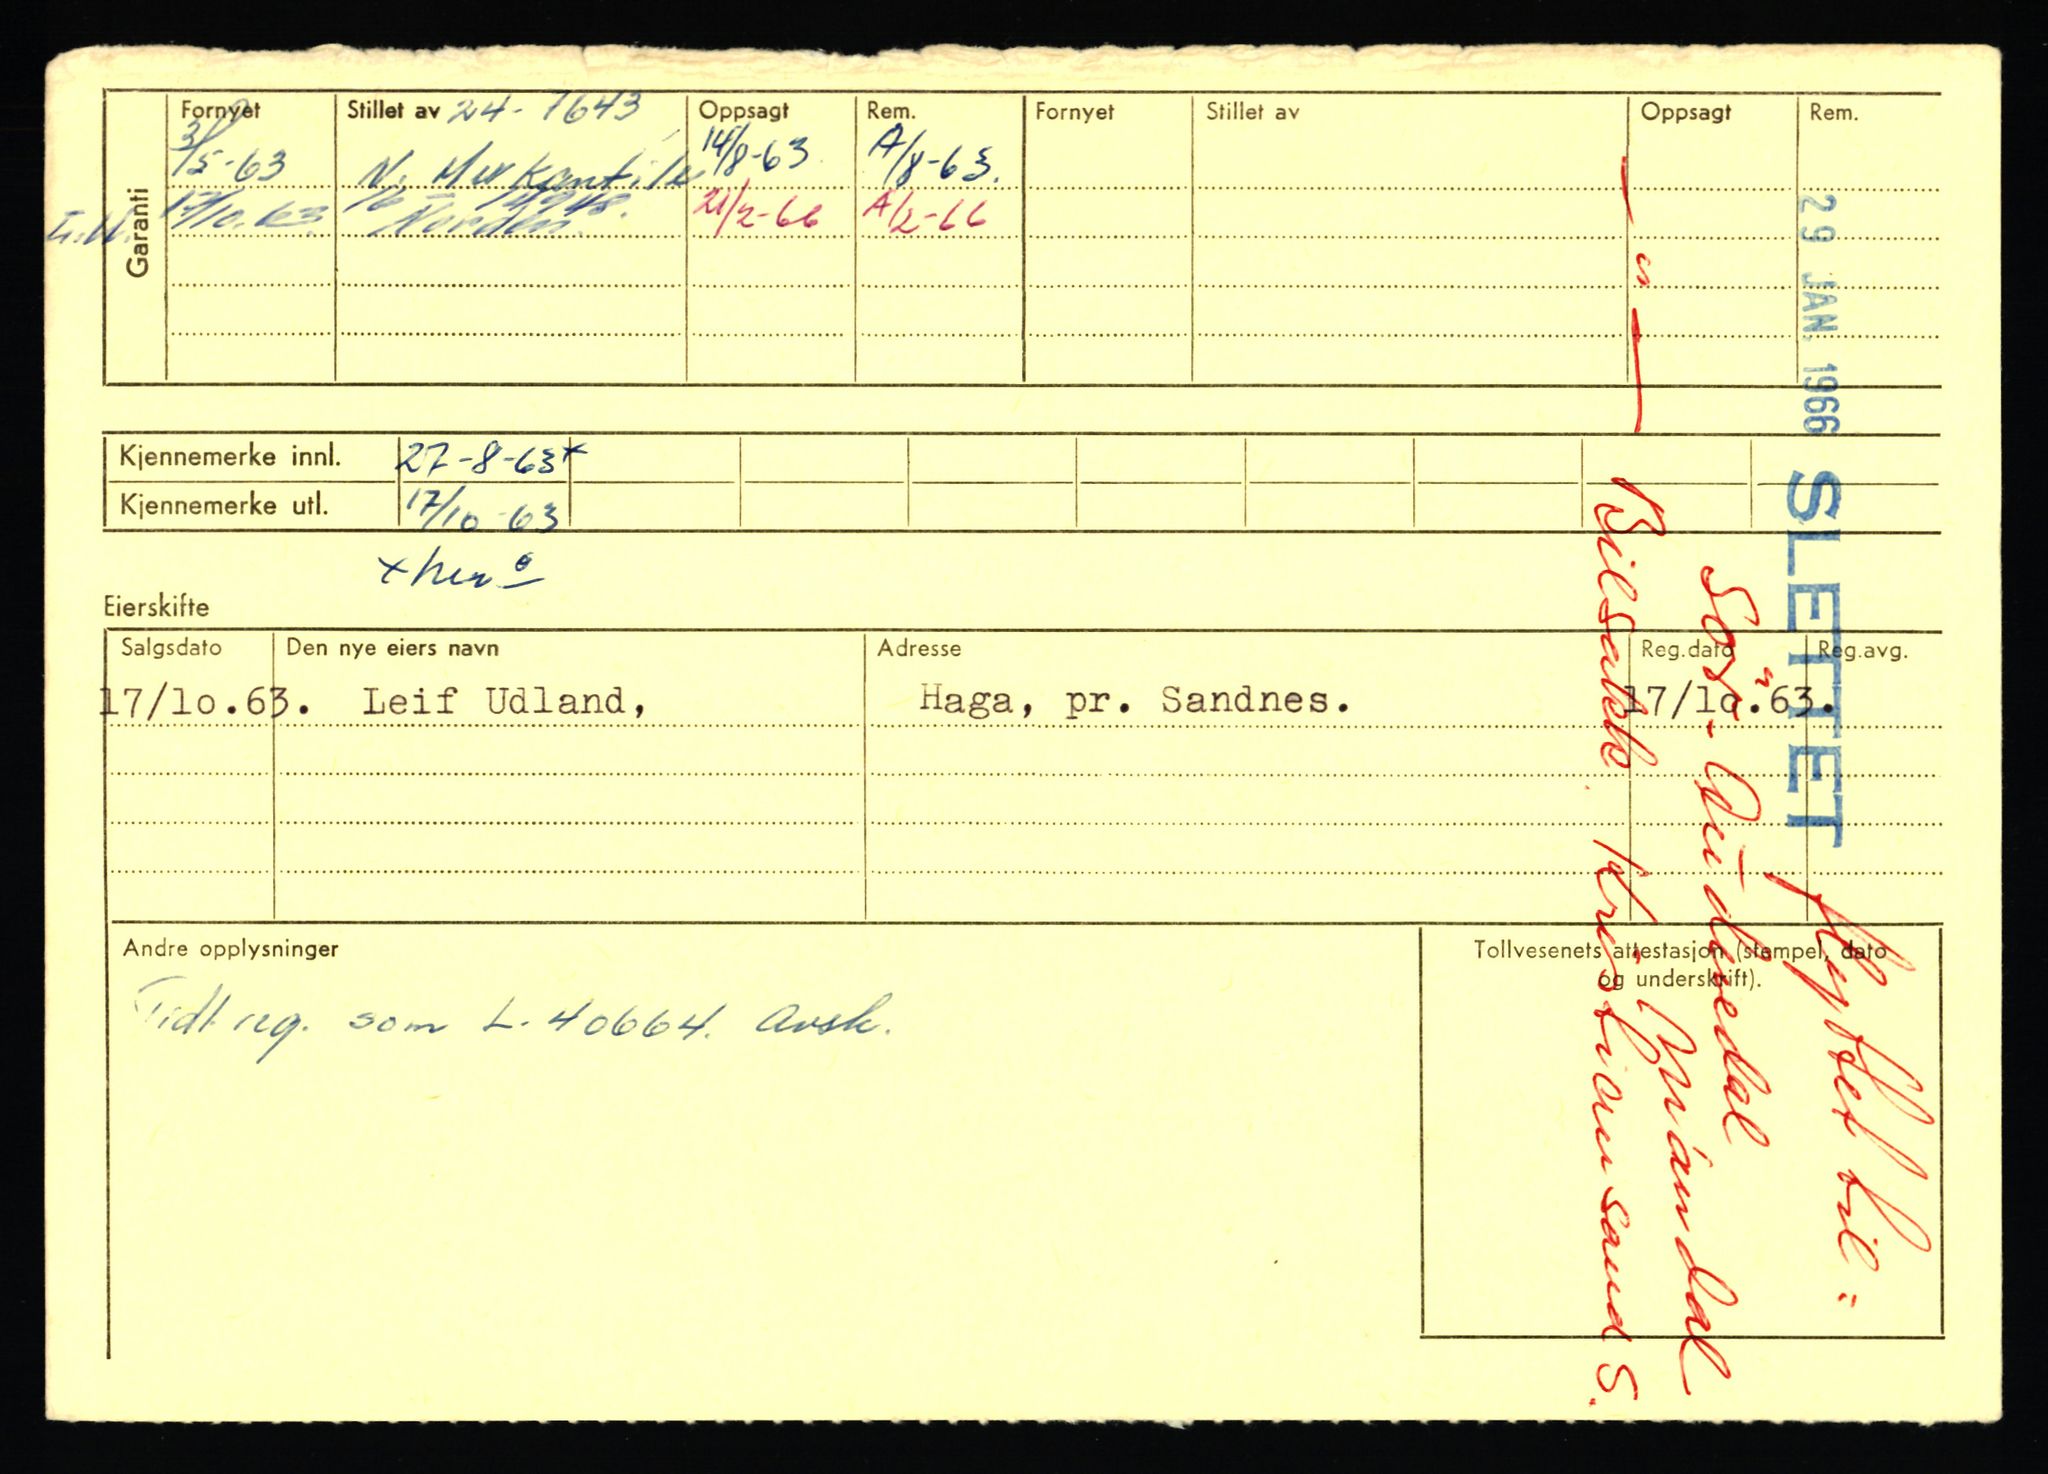 Garanti
Fornyet Stillet av 24-7643 Oppsagt Rem. Fornyet Stillet av Oppsagt Rem.
3/5-63 N. Merkantile 14/8-63 A/8-63.
17/10.63 Norden. 21/2-66 A/2-66
Kjennemerke innl. 27-8-63 x
Kjennemerke utl. 17/10-63
x
Eierskifte
Salgsdato Den nye eiers navn Adresse Reg.dato Reg.avg.
17/lo.63. Leif Udland, Haga, pr. Sandnes. 17/lo.63.
Andre opplysninger
Tidl. reg. som L-40664. Avsk.
Tollvesenets attestasjon (stempel, dato
og underskrift).
29 JAN. 1966 SLETTET
flyttet til:
Sör-Audnedal
Mandal
Bilsakk. Kristiansand S.